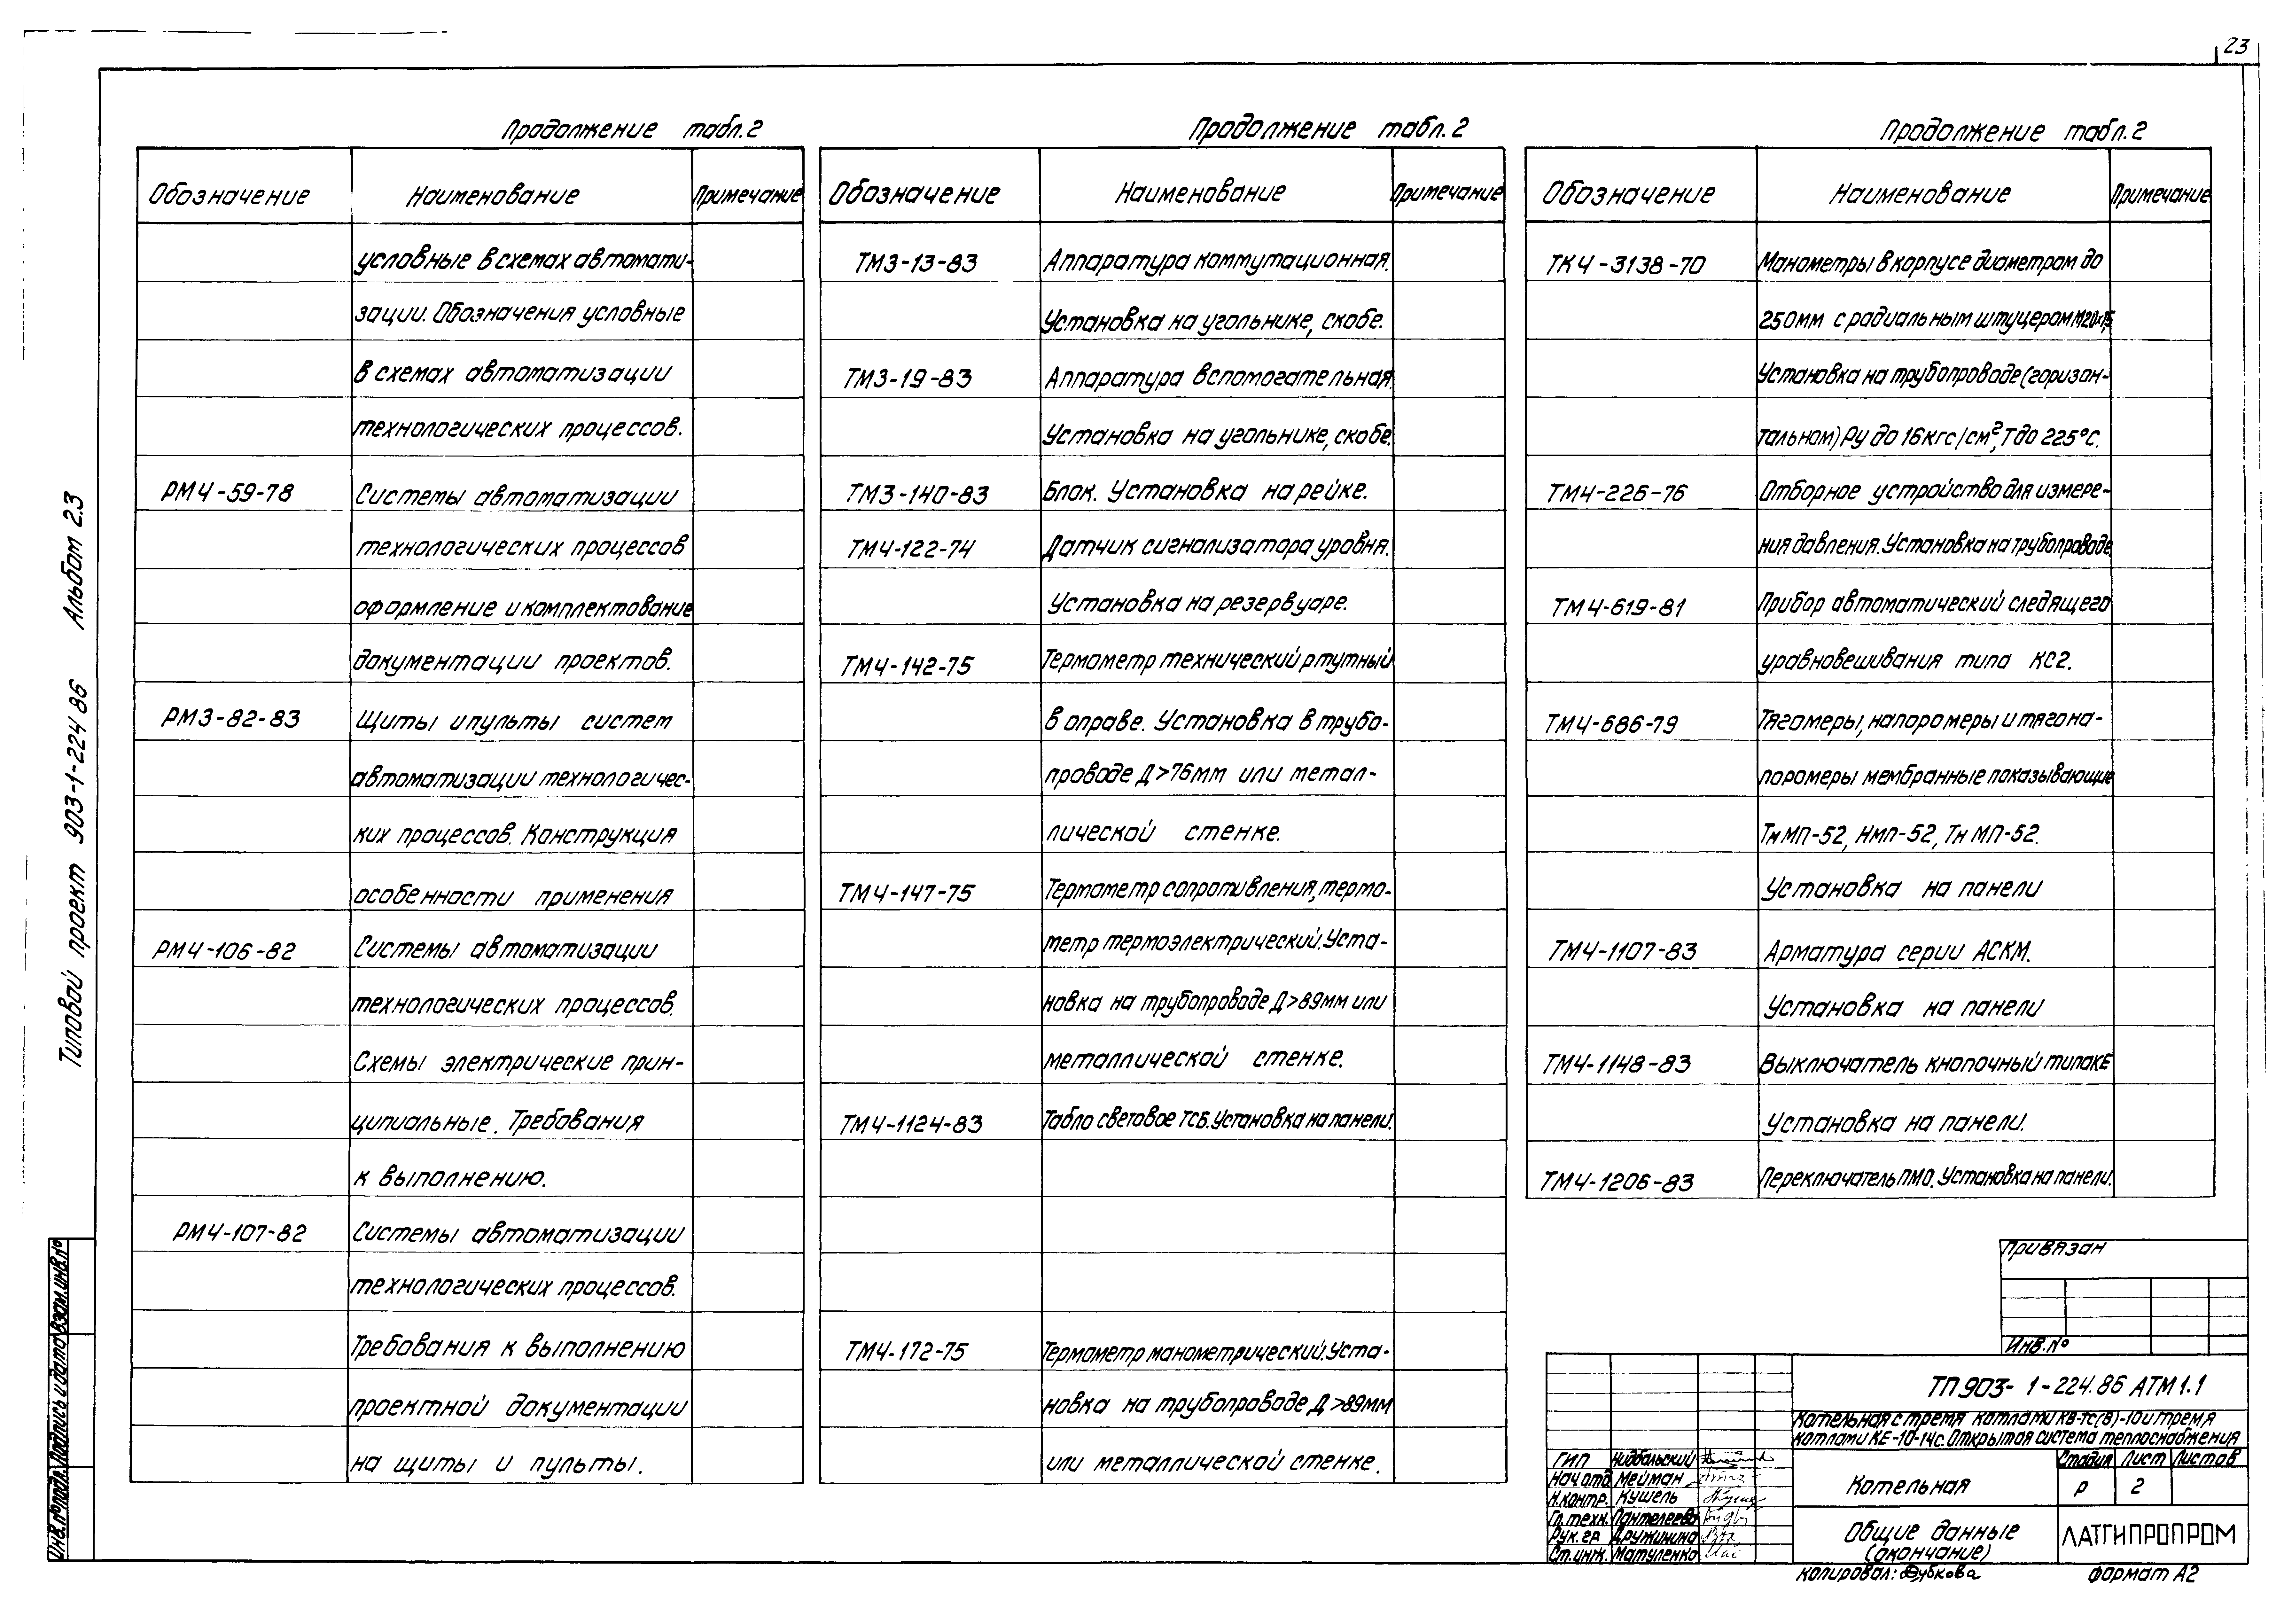 23
Продолжение табл.2
Обозначение Наименование Примечание
условные в схемах автомати-
зации. Обозначения условные
в схемах автоматизации
технологических процессов.
РМ4-59-78 Системы автоматизации
технологических процессов
оформление и комплектование
документации проектов.
РМ3-82-83 Щиты и пульты систем
автоматизации технологичес-
ких процессов. Конструкция
особенности применения
РМ4-106-82 Системы автоматизации
технологических процессов.
Схемы электрические прин-
ципиальные. Требования
к выполнению.
РМ4-107-82 Системы автоматизации
технологических процессов.
Требования к выполнению
проектной документации
на щиты и пульты.
Продолжение табл.2
Обозначение Наименование Примечание
ТМ3-13-83 Аппаратура коммутационная.
Установка на угольнике, скобе.
ТМ3-19-83 Аппаратура вспомогательная.
Установка на угольнике, скобе.
ТМ3-140-83 Блок. Установка на рейке.
ТМ4-122-74 Датчик сигнализатора уровня.
Установка на резервуаре.
ТМ4-142-75 Термометр технический ртутный
в оправе. Установка в трубо-
проводе Д>76мм или метал-
лической стенке.
ТМ4-147-75 Термометр сопротивления, термо-
метр термоэлектрический. Уста-
новка на трубопроводе Д>89мм или
металлической стенке.
ТМ4-1124-83 Табло световое ТСБ. Установка на панели.
ТМ4-172-75 Термометр манометрический. Уста-
новка на трубопроводе Д>89мм
или металлической стенке.
Продолжение табл.2
Обозначение Наименование Примечание
ТК4-3138-70 Манометры в корпусе диаметром до
250мм с радиальным штуцером М20×1,5
Установка на трубопроводе (горизон-
тальном) Ру до 16кгс/см², Т до 225°С.
ТМ4-226-76 Отборное устройство для измере-
ния давления. Установка на трубопроводе.
ТМ4-619-81 Прибор автоматический следящего
уравновешивания типа КС2.
ТМ4-686-79 Тягомеры, напоромеры и тягона-
поромеры мембранные показывающие
ТмМП-52, НМП-52, ТнМП-52.
Установка на панели
ТМ4-1107-83 Арматура серии АСКМ.
Установка на панели
ТМ4-1148-83 Выключатель кнопочный типа КЕ
Установка на панели.
ТМ4-1206-83 Переключатель ПМО. Установка на панели.
Типовой проект 903-1-224 86 Альбом 2.3
Инв.№ подл. Подпись и дата Взам.инв.№
Привязан
Инв.№
ТП 903-1-224.86 АТМ 1.1
Котельная с тремя котлами КВ-ТС(В)-10 и тремя
котлами КЕ-10-14с. Открытая система теплоснабжения
ГИП Нидбальский
Нач отд Мейман
Н.контр. Кушель
Гл.техн. Пантелеева
Рук.гр Дружинина
Ст.инж. Матуленко
Котельная
Стадия Лист Листов
Р 2
Общие данные
(окончание)
ЛАТГИПРОПРОМ
Копировал: Дубкова Формат А2